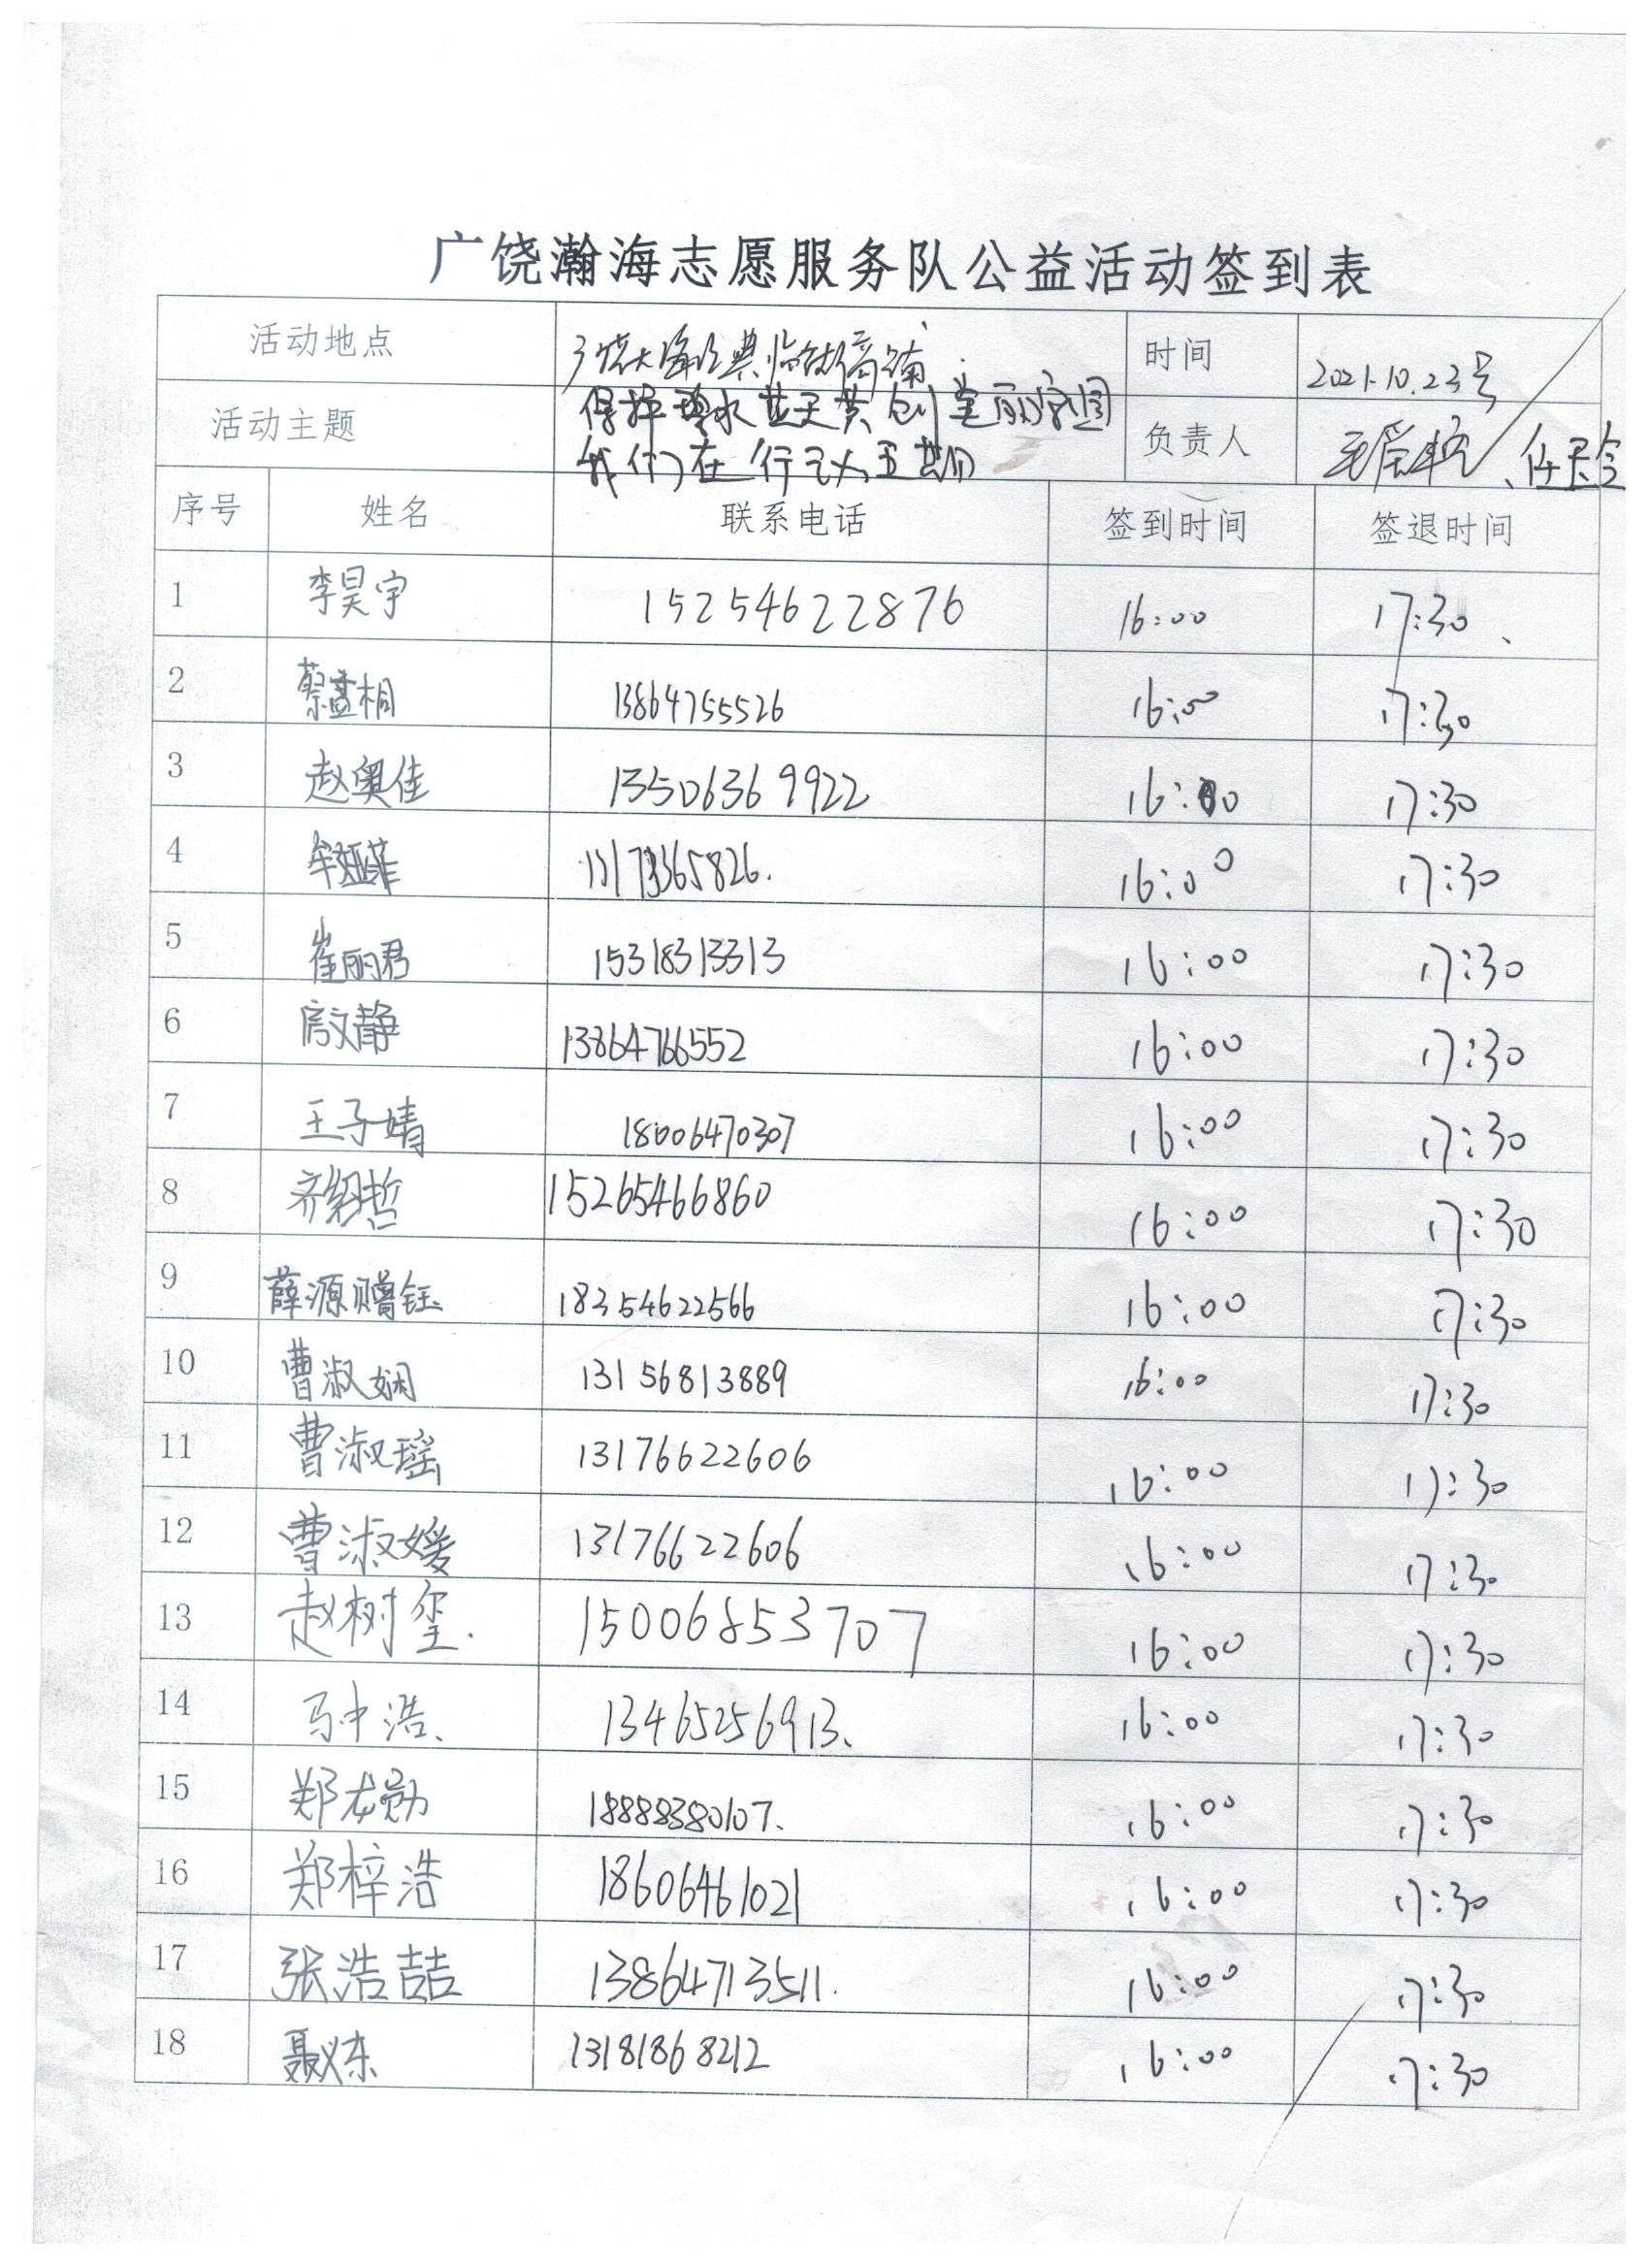 广饶瀚海志愿服务队公益活动签到表
活动地点 广饶大海经典临街商铺 时间 2021.10.23号
活动主题 保护碧水蓝天共创美丽家园 负责人
我们在行动
序号 姓名 联系电话 签到时间 签退时间
1 李昊宇 15254622876 16:00 17:30
2 蔡孟桐 13864755526 16:00 17:30
3 赵奥佳 13506369922 16:00 17:30
4 牟娅菲 13173365826. 16:00 17:30
5 崔丽君 15318313313 16:00 17:30
6 扈文静 13864766552 16:00 17:30
7 王子婧 18006470307 16:00 17:30
8 齐绍哲 15265466860 16:00 17:30
9 薛源赠钰 18354622566 16:00 17:30
10 曹淑娴 13156813889 16:00 17:30
11 曹淑瑶 13176622606 16:00 17:30
12 曹淑媛 13176622606 16:00 17:30
13 赵树玺. 15006853707 16:00 17:30
14 马中浩、 13465256913、 16:00 17:30
15 郑龙勋 18888380107、 16:00 17:30
16 郑梓浩 18606461021 16:00 17:30
17 张浩喆 13864713511. 16:00 17:30
18 聂义东 13181868212 16:00 17:30